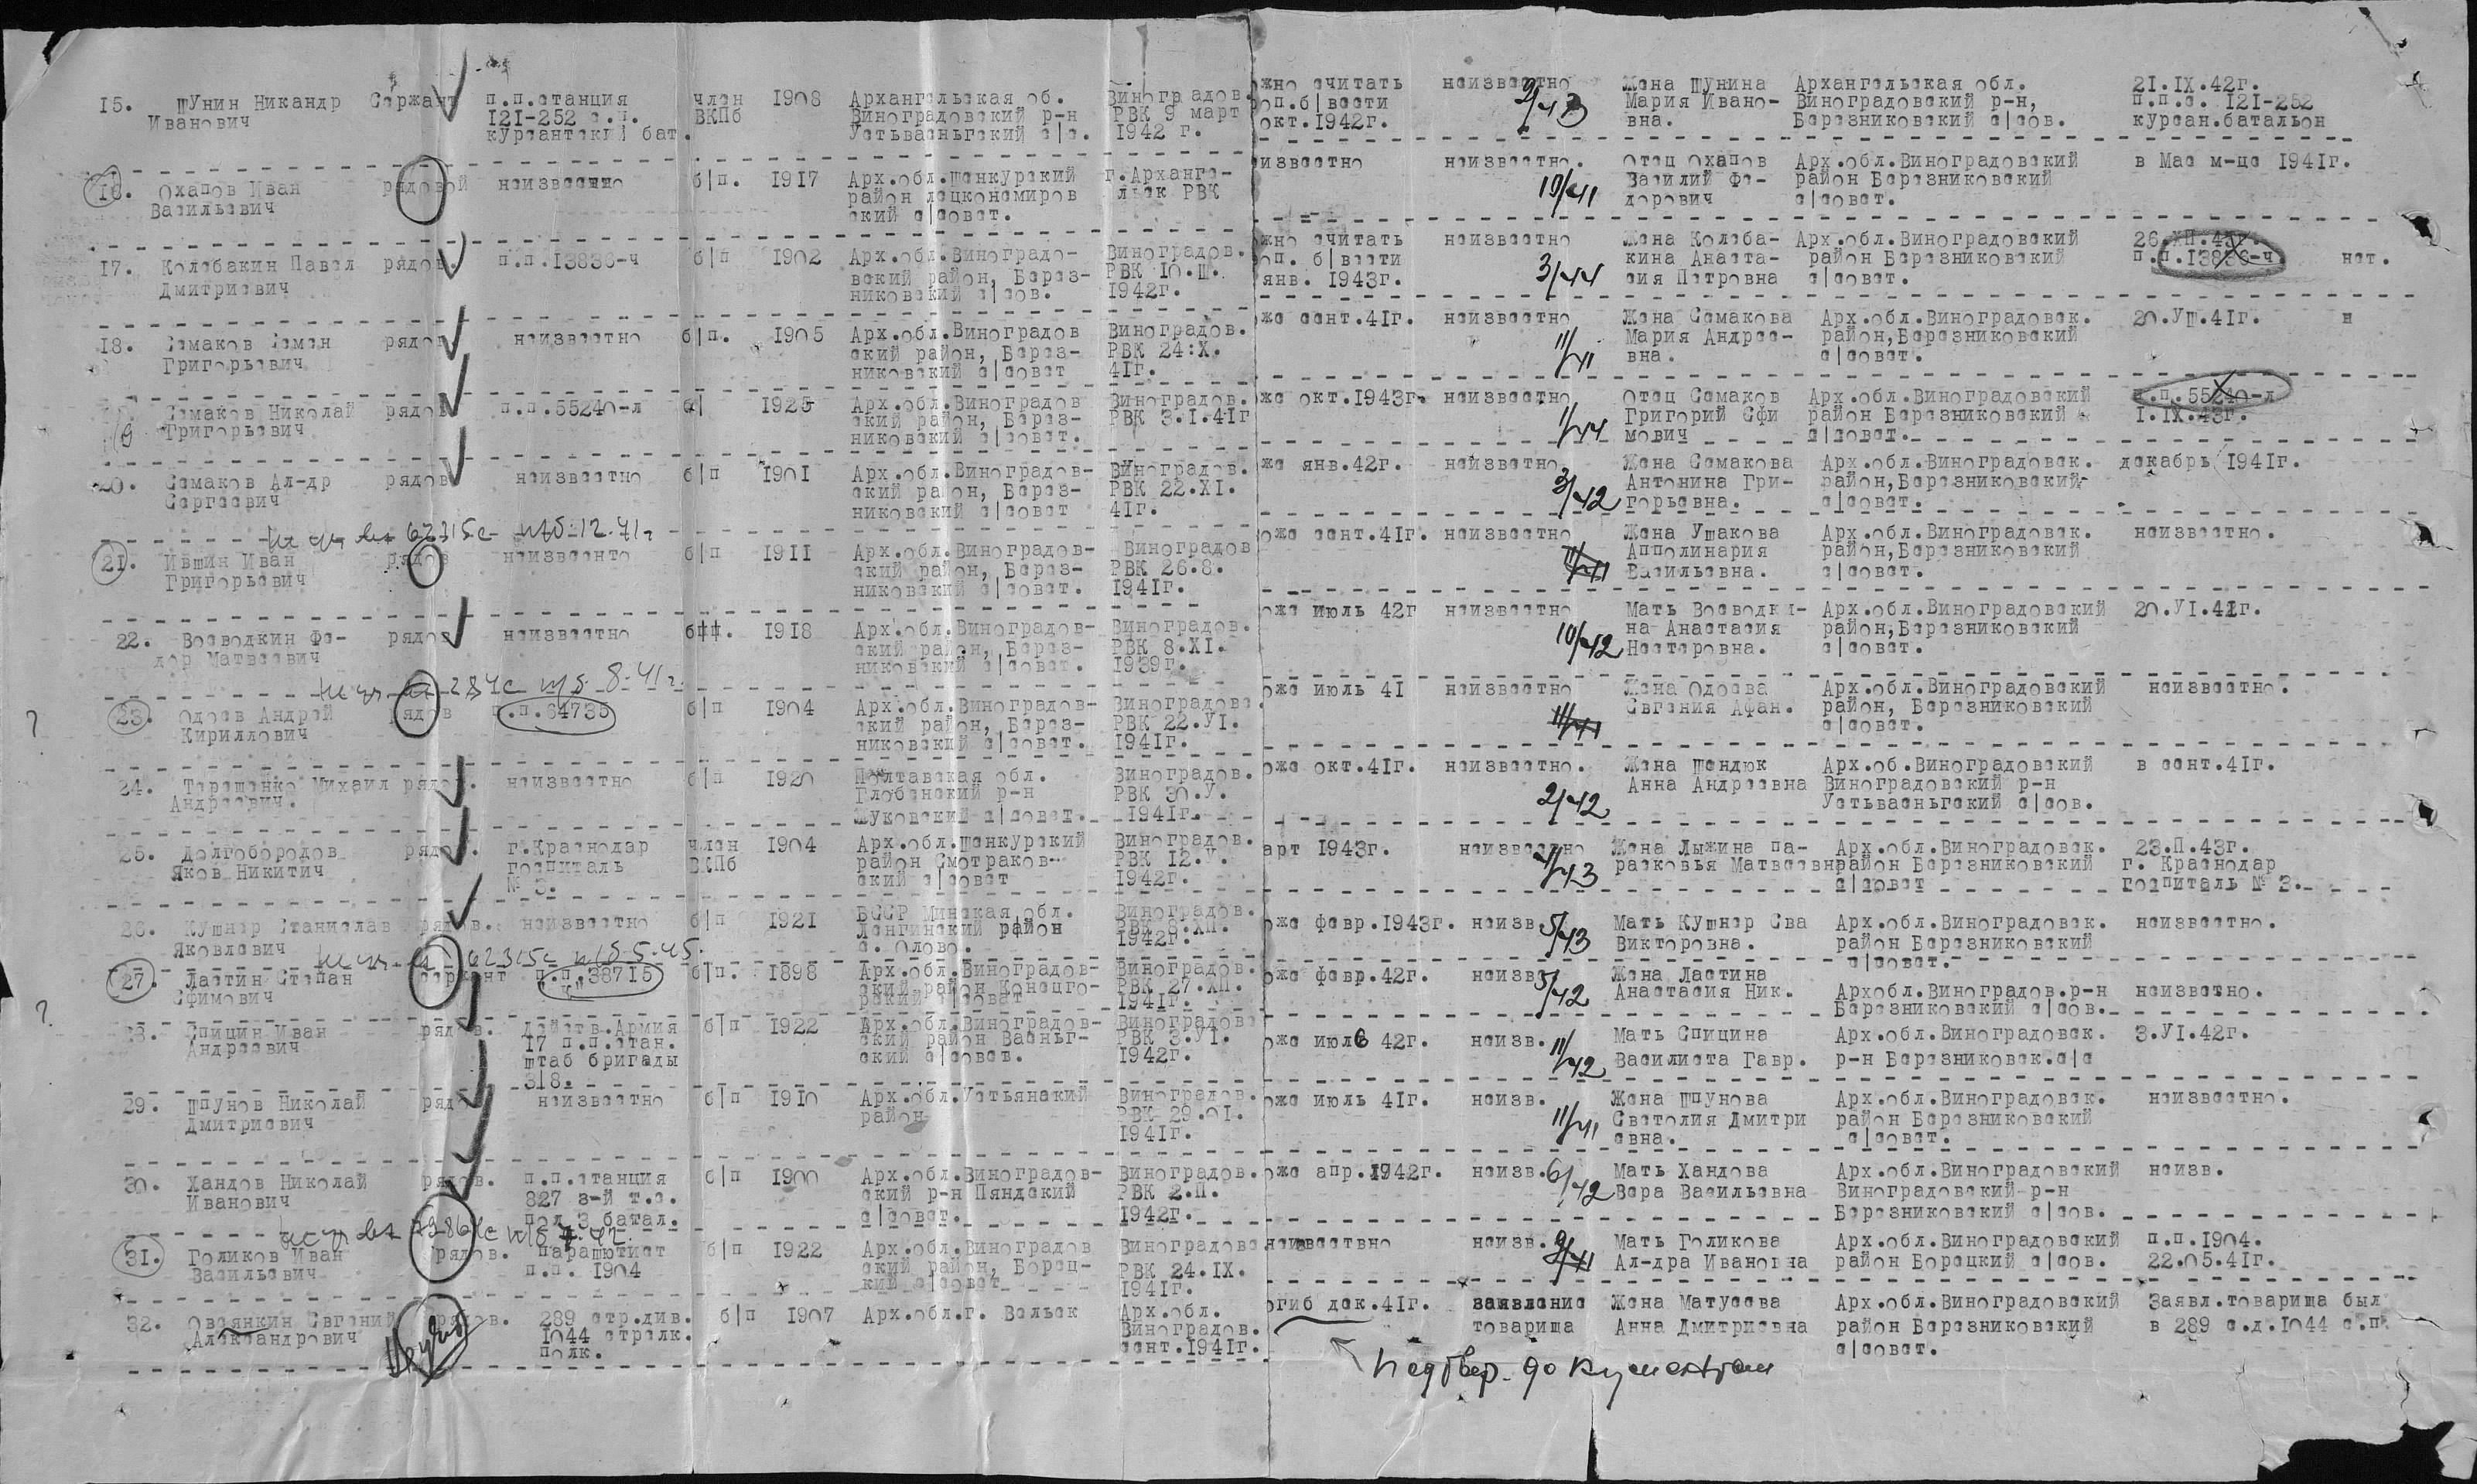 15. Шунин Никандр Сержант п.п.станция член 1908 Архангельская об. Виноградов. жно считать неизвестно Жена Шунина Архангельская обл. 21.IX.42г.
Иванович 121-252 с.п. ВКПб Виноградовский р-н РВК 9 март роп.б|вести 9/43 Мария Ивано- Виноградовский р-н, п.п.с. 121-252
курсантский бат. Устьваеньгский с|с. 1942 г. окт.1942г. вна. Березниковский с|сов. курсан.батальон
16. Охапов Иван рядовой неизвестно б|п. 1917 Арх.обл.Шенкурский г.Арханге- известно неизвестно. Отец Охапов Арх.обл.Виноградовский в Мае м-це 1941г.
Васильевич район льск РВК 10/41 Василий Фе- район Березниковский
ский с|совет. дорович с|совет.
17. Колебакин Павел рядов. п.п.13836-ч б|п 1902 Арх.обл.Виноградо- Виноградов. жно считать неизвестно Жена Колеба- Арх.обл.Виноградовский
Дмитриевич вский район, Берез- РВК 10.Ш. роп. б|вести 3/44 кина Анаста- район Березниковский п.п.13836-ч нет.
никовский с|сов. 1942г. янв. 1943г. сия Петровна с|совет.
18. Семаков Семен рядов неизвестно б|п. 1905 Арх.обл.Виноградов Виноградов. же сент.41г. неизвестно Жена Семакова Арх.обл.Виноградовск. 20.УШ.41г. н
Григорьевич ский район, Берез- РВК 24:X. 11/41 Мария Андрее- район,Березниковский
никовский с|совет 41г. вна. с|совет.
19 Семаков Николай рядов п.п.55240-л 1925 Арх.обл.Виноградов Виноградов. же окт.1943г. неизвестно Отец Семаков Арх.обл.Виноградовский п.п.55240-л
Григорьевич ский район, Берез- РВК 3.I.41г 1/44 Григорий Ефи район Березниковский 1.IX.43г.
никовский с|совет. мович с|совет.
20. Семаков Ал-др рядов неизвестно б|п 1901 Арх.обл.Виноградов- Виноградов. же янв.42г. неизвестно Жена Семакова Арх.обл.Виноградовск. декабрь 1941г.
Сергеевич ский район, Берез- РВК 22.XI. 3/42 Антонина Гри- район,Березниковский
никовский с|совет 41г. горьевна. с|совет.
62315с п/б-12.41г
21. Ившин Иван рядов неизвестно б|п 1911 Арх.обл.Виноградов- Виноградов оже сент.41г. неизвестно Жена Ушакова Арх.обл.Виноградовск. неизвестно.
Григорьевич ский район, Берез- РВК 26.8. 11/41 Апполинария район,Березниковский
никовский с|совет. 1941г. Васильевна. с|совет.
22. Воеводкин Фе- рядов неизвестно 1918 Арх.обл.Виноградов- Виноградов. оже июль 42г неизвестно Мать Воеводки- Арх.обл.Виноградовский 20.УI.42г.
дор Матвеевич ский район, Берез- РВК 8.XI. 10/42 на Анастасия район,Березниковский
никовский с|совет. 1939г. Нестеровна. с|совет.
п/б 8-41г.
23. Одоев Андрей рядов п.п.64735 б|п 1904 Арх.обл.Виноградов- Виноградова. оже июль 41 неизвестно Жена Одоева Арх.обл.Виноградовский неизвестно.
Кириллович ский район, Берез- РВК 22.УI. 11/41 Евгения Афан. район, Березниковский
никовский с|совет. 1941г. с|совет.
24. Терещенко Михаил рядов. неизвестно б|п 1920 Полтавская обл. Виноградов. оже окт.41г. неизвестно. Жена Шендюк Арх.об.Виноградовский в сент.41г.
Андреевич. Глобенский р-н РВК 30.У. 2/42 Анна Андреевна Виноградовский р-н
Жуковский с|совет. 1941г. Устьваеньгский с|сов.
25. Долгобородов рядов. г.Краснодар член 1904 Арх.обл.Шенкурский Виноградов. арт 1943г. неизвестно Жена Лыжина па- Арх.обл.Виноградовск. 23.П.43г.
Яков Никитич госпиталь ВКПб район Смотраков- РВК 12.У. расковья Матвеевна район Березниковский г. Краснодар
№ 3. ский с|совет 1942г. с|совет госпиталь № 3.
26. Кушнер Станислав рядов. неизвестно б|п 1921 БССР Минская обл. Виноградов. оже февр.1943г. неизв. 5/43 Мать Кушнер Ева Арх.обл.Виноградовск. неизвестно.
Яковлевич Ленгинский район РВК 8.XП. Викторовна. район Березниковский
с. Олово. 1942г. с|совет.
62315с п/б 5-45.
27. Ластин Степан сержант п.п.38715 б|п. 1898 Арх.обл.Виноградов- Виноградов. оже февр.42г. неизв. 5/42 Жена Ластина
Ефимович "с" ский район Конецго- РВК 27.XП. Анастасия Ник. Архобл.Виноградов.р-н неизвестно.
рский с|совет 1941г. Березниковский с|сов.
28. Спицин Иван рядов. действ.Армия б|п 1922 Арх.обл.Виноградов- Виноградов. оже июле 42г. неизв. 11/42 Мать Спицина Арх.обл.Виноградовск. 3.УI.42г.
Андреевич 17 п.п.стан. ский район Ваеньг- РВК 3.УI. Василиста Гавр. р-н Березниковск.с|с
штаб бригады ский с|совет. 1942г.
318.
29. Шпунов Николай рядов неизвестно б|п 1910 Арх.обл.Устьянский Виноградов. оже июль 41г. неизв. Жена Шпунова Арх.обл.Виноградовск. неизвестно.
Дмитриевич район РВК 29.01. 11/41 Светолия Дмитри район Березниковский
1941г. евна. с|совет.
30. Хандов Николай рядов. п.п.станция б|п 1900 Арх.обл.Виноградов- Виноградов. оже апр.1942г. неизв. 6/42 Мать Хандова Арх.обл.Виноградовский неизв.
Иванович 827 з-й т.с. ский р-н Пяндский РВК 2.П. Вера Васильевна Виноградовский р-н
пол 3 батал. с|совет. 1942г. Березниковский с|сов.
31. Голиков Иван рядов. парашютист б|п 1922 Арх.обл.Виноградов Виноградов неизвествно неизв. 9/41 Мать Голикова Арх.обл.Виноградовский п.п.1904.
Васильевич п.п. 1904 ский район, Борец- РВК 24.IX. Ал-дра Ивановна район Борецкий с|сов. 22.05.41г.
кий с|совет 1941г.
32. Овсянкин Евгений рядов. 289 стр.див. б|п 1907 Арх.обл.г. Вельск Арх.обл. огиб дек.41г. заявление Жена Матусева Арх.обл.Виноградовский Заявл.товарища был
Александрович 1044 стрелк. Виноградов. товарища Анна Дмитриевна район Березниковский в 289 с.д.1044 с.п.
полк. сент.1941г. с|совет.
Подтвер. документам